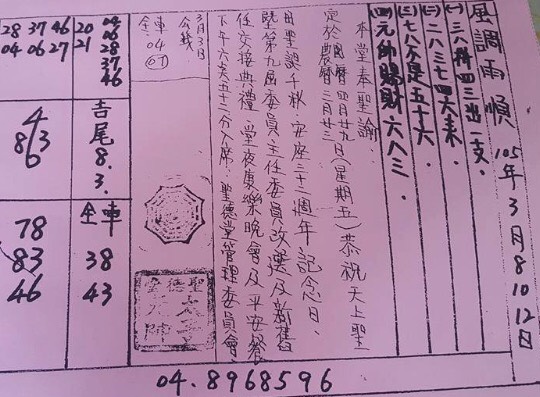 風調雨順
105年3月8 10 12日
(一)三八 四三出一支.
(二)二八三七四六來.
(三)七八不是五十六.
(四)元帥賜財六八三.
本堂奉聖諭:
定於國曆四月廿九日(星期五)恭祝天上聖
農曆三月廿三
母聖誕千秋、安座三十二週年記念日、
暨第九屆委員主任委員改選及新舊
任交接典禮、當夜康樂晚會及平安餐
下午六 五十二分入席.聖德堂管理委員會
3月3日
全車
04
67
20 04
21 06
28
37
46
28 37 46
04 06 27
吉尾
8.
3.
4
8 3
6
全車
38
43
78
83
46
04.8968596